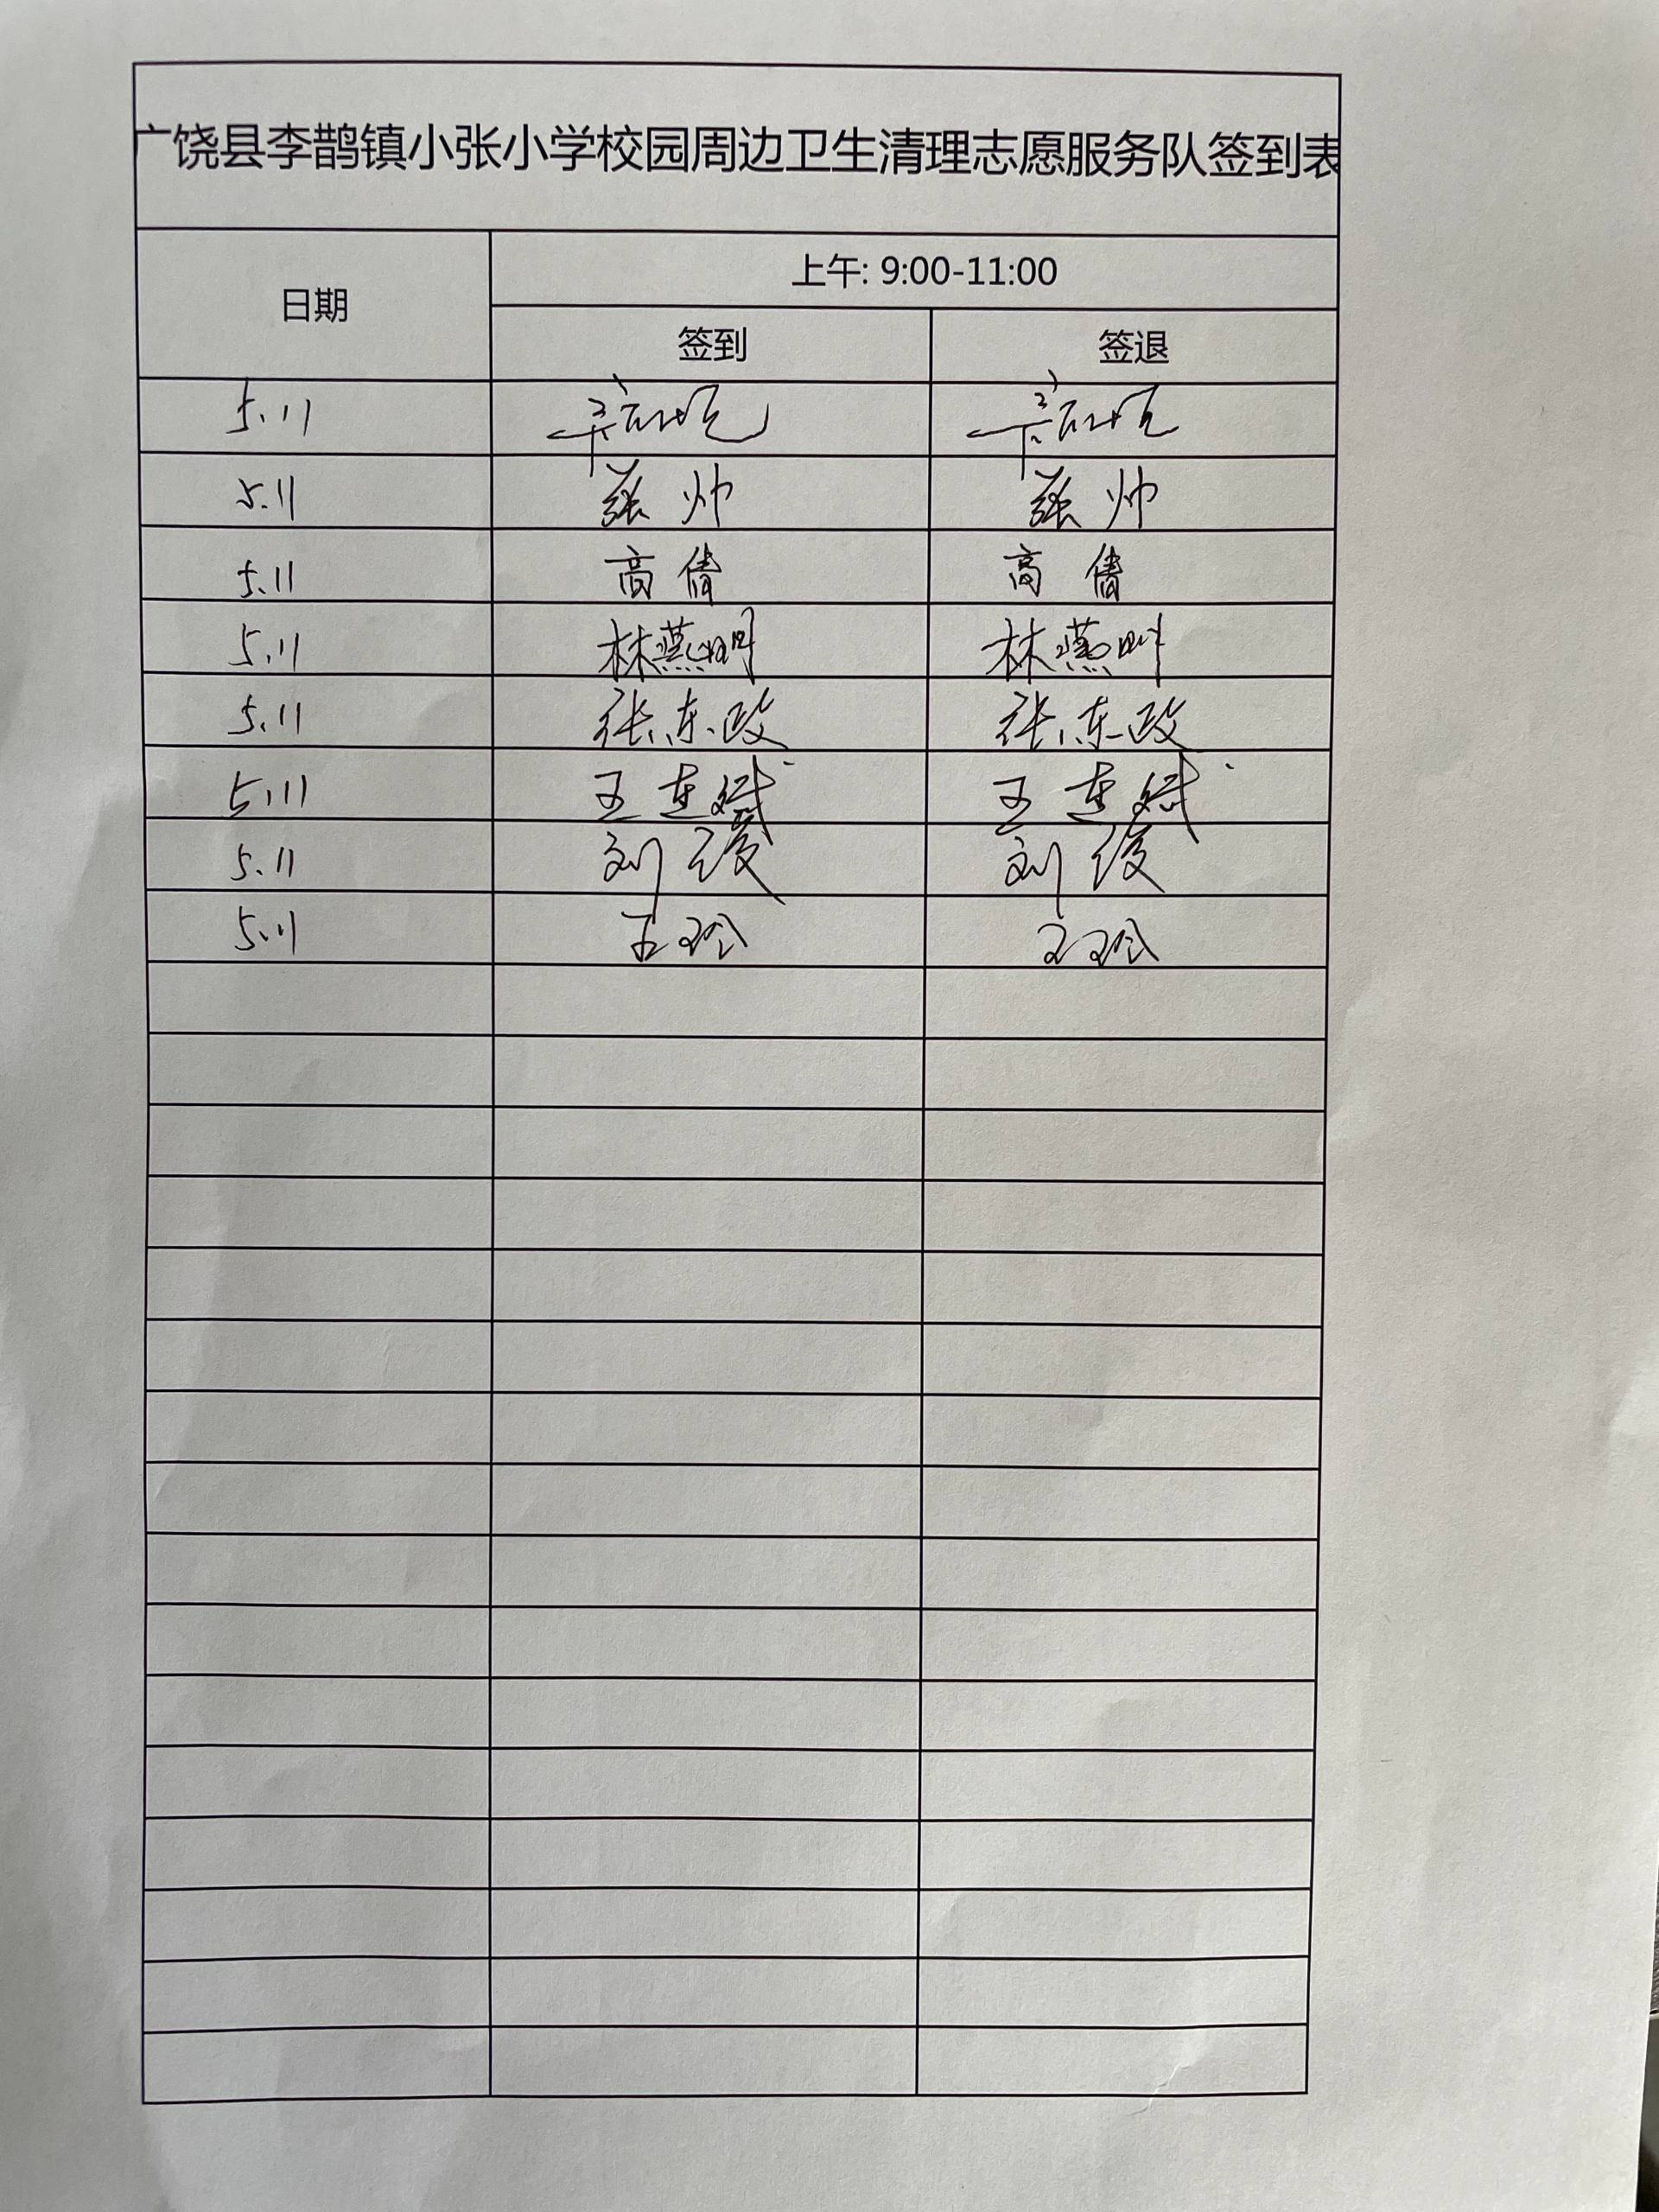 广饶县李鹊镇小张小学校园周边卫生清理志愿服务队签到表
日期
上午: 9:00-11:00
签到 签退
5.11
5.11 张帅 张帅
5.11 高倩 高倩
5.11 林燕 林燕
5.11 张东政 张东政
5.11 王连斌 王连斌
5.11 刘 刘
5.11 王玲 王玲